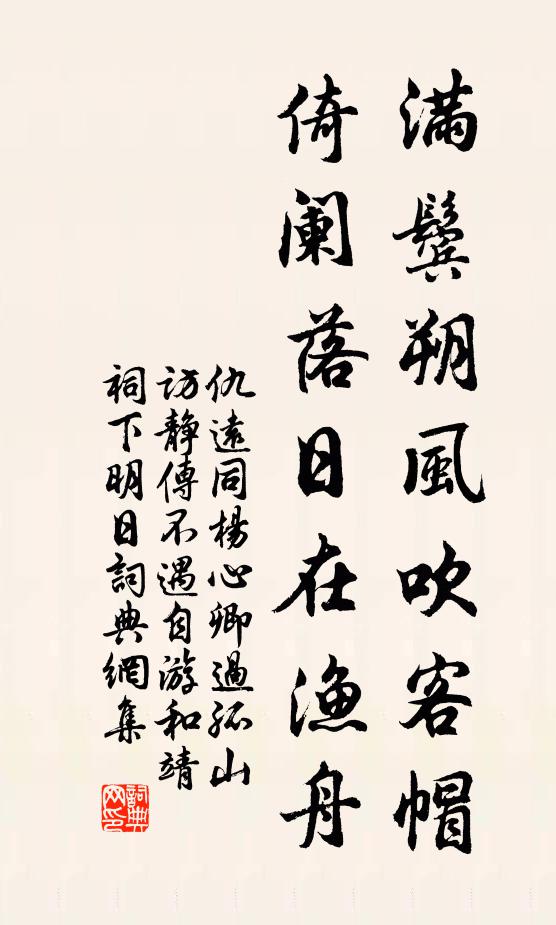 满鬓朔風吹客帽
倚阑落日在渔舟
仇遠同楊心卿過孤山
访静傅不遇自游和靖
祠下明日詞典網集
詞典
网印